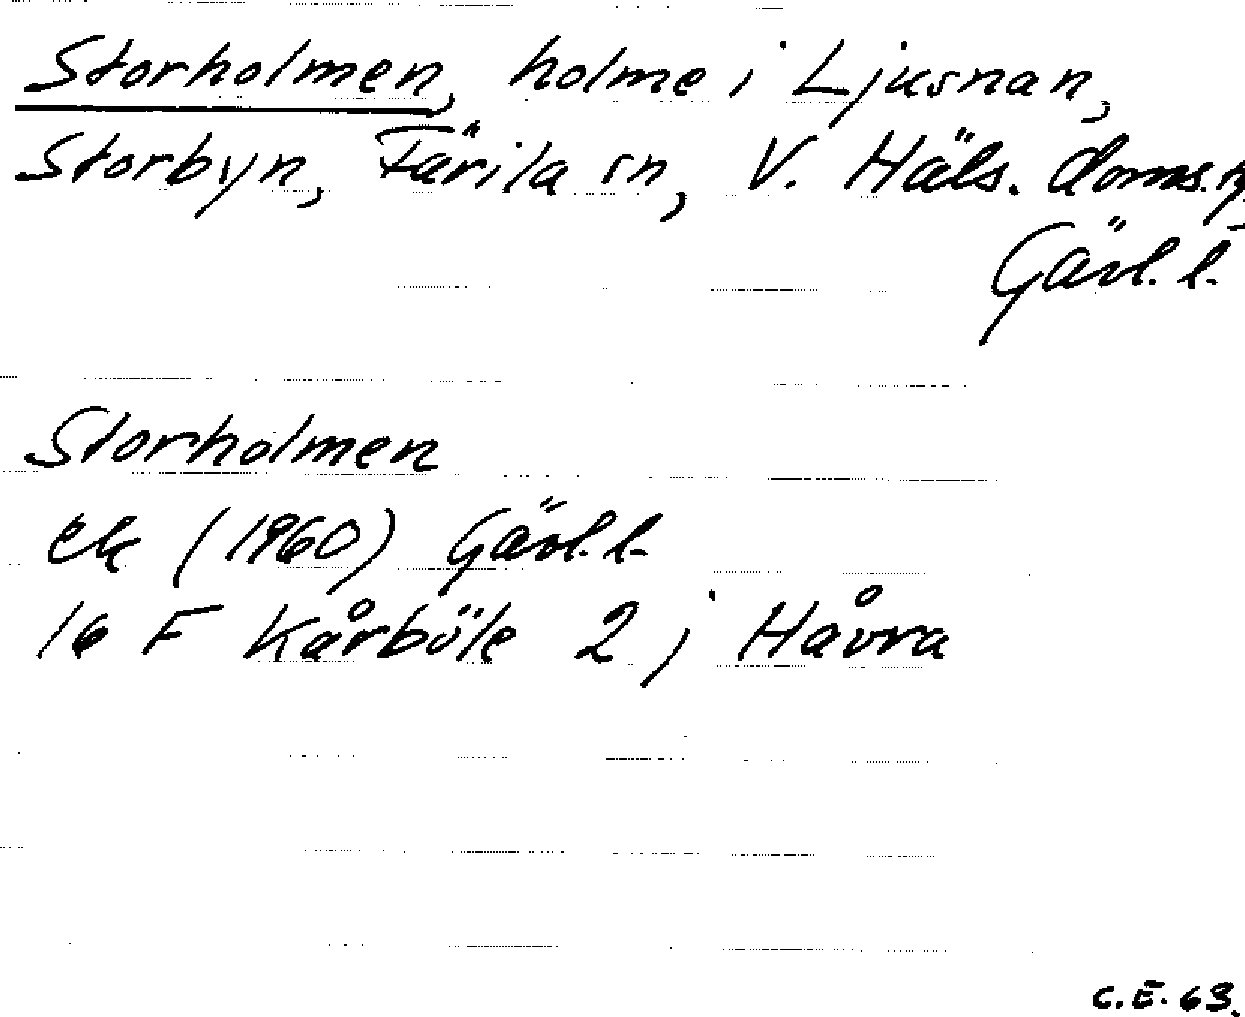 Storholmen, holme i Ljusnan,
Storbyn, Färila sn, V. Häls. doms.
Gävl. l.
Storholmen
ek (1960) Gävl. l.
16 F Kårböle 2 j Håvra
C.E. 63.